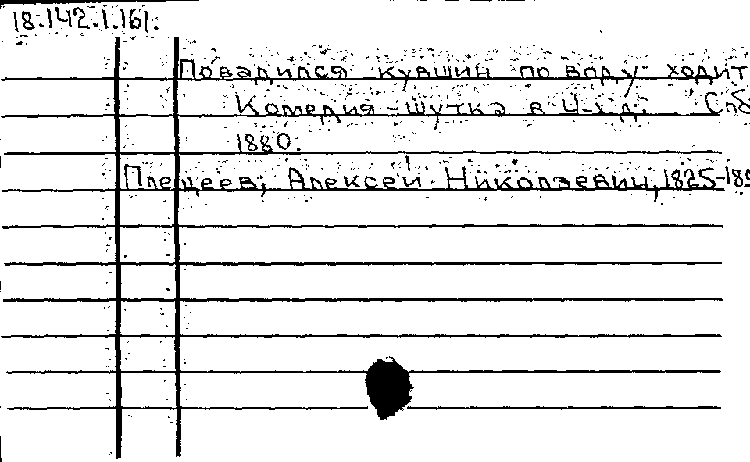 18.142.1.161.
Повадился кувшин по воду ходит
Комедия-шутка в 4-х д. Спб
1880.
Плещеев, Алексей Николаевич, 1825-189